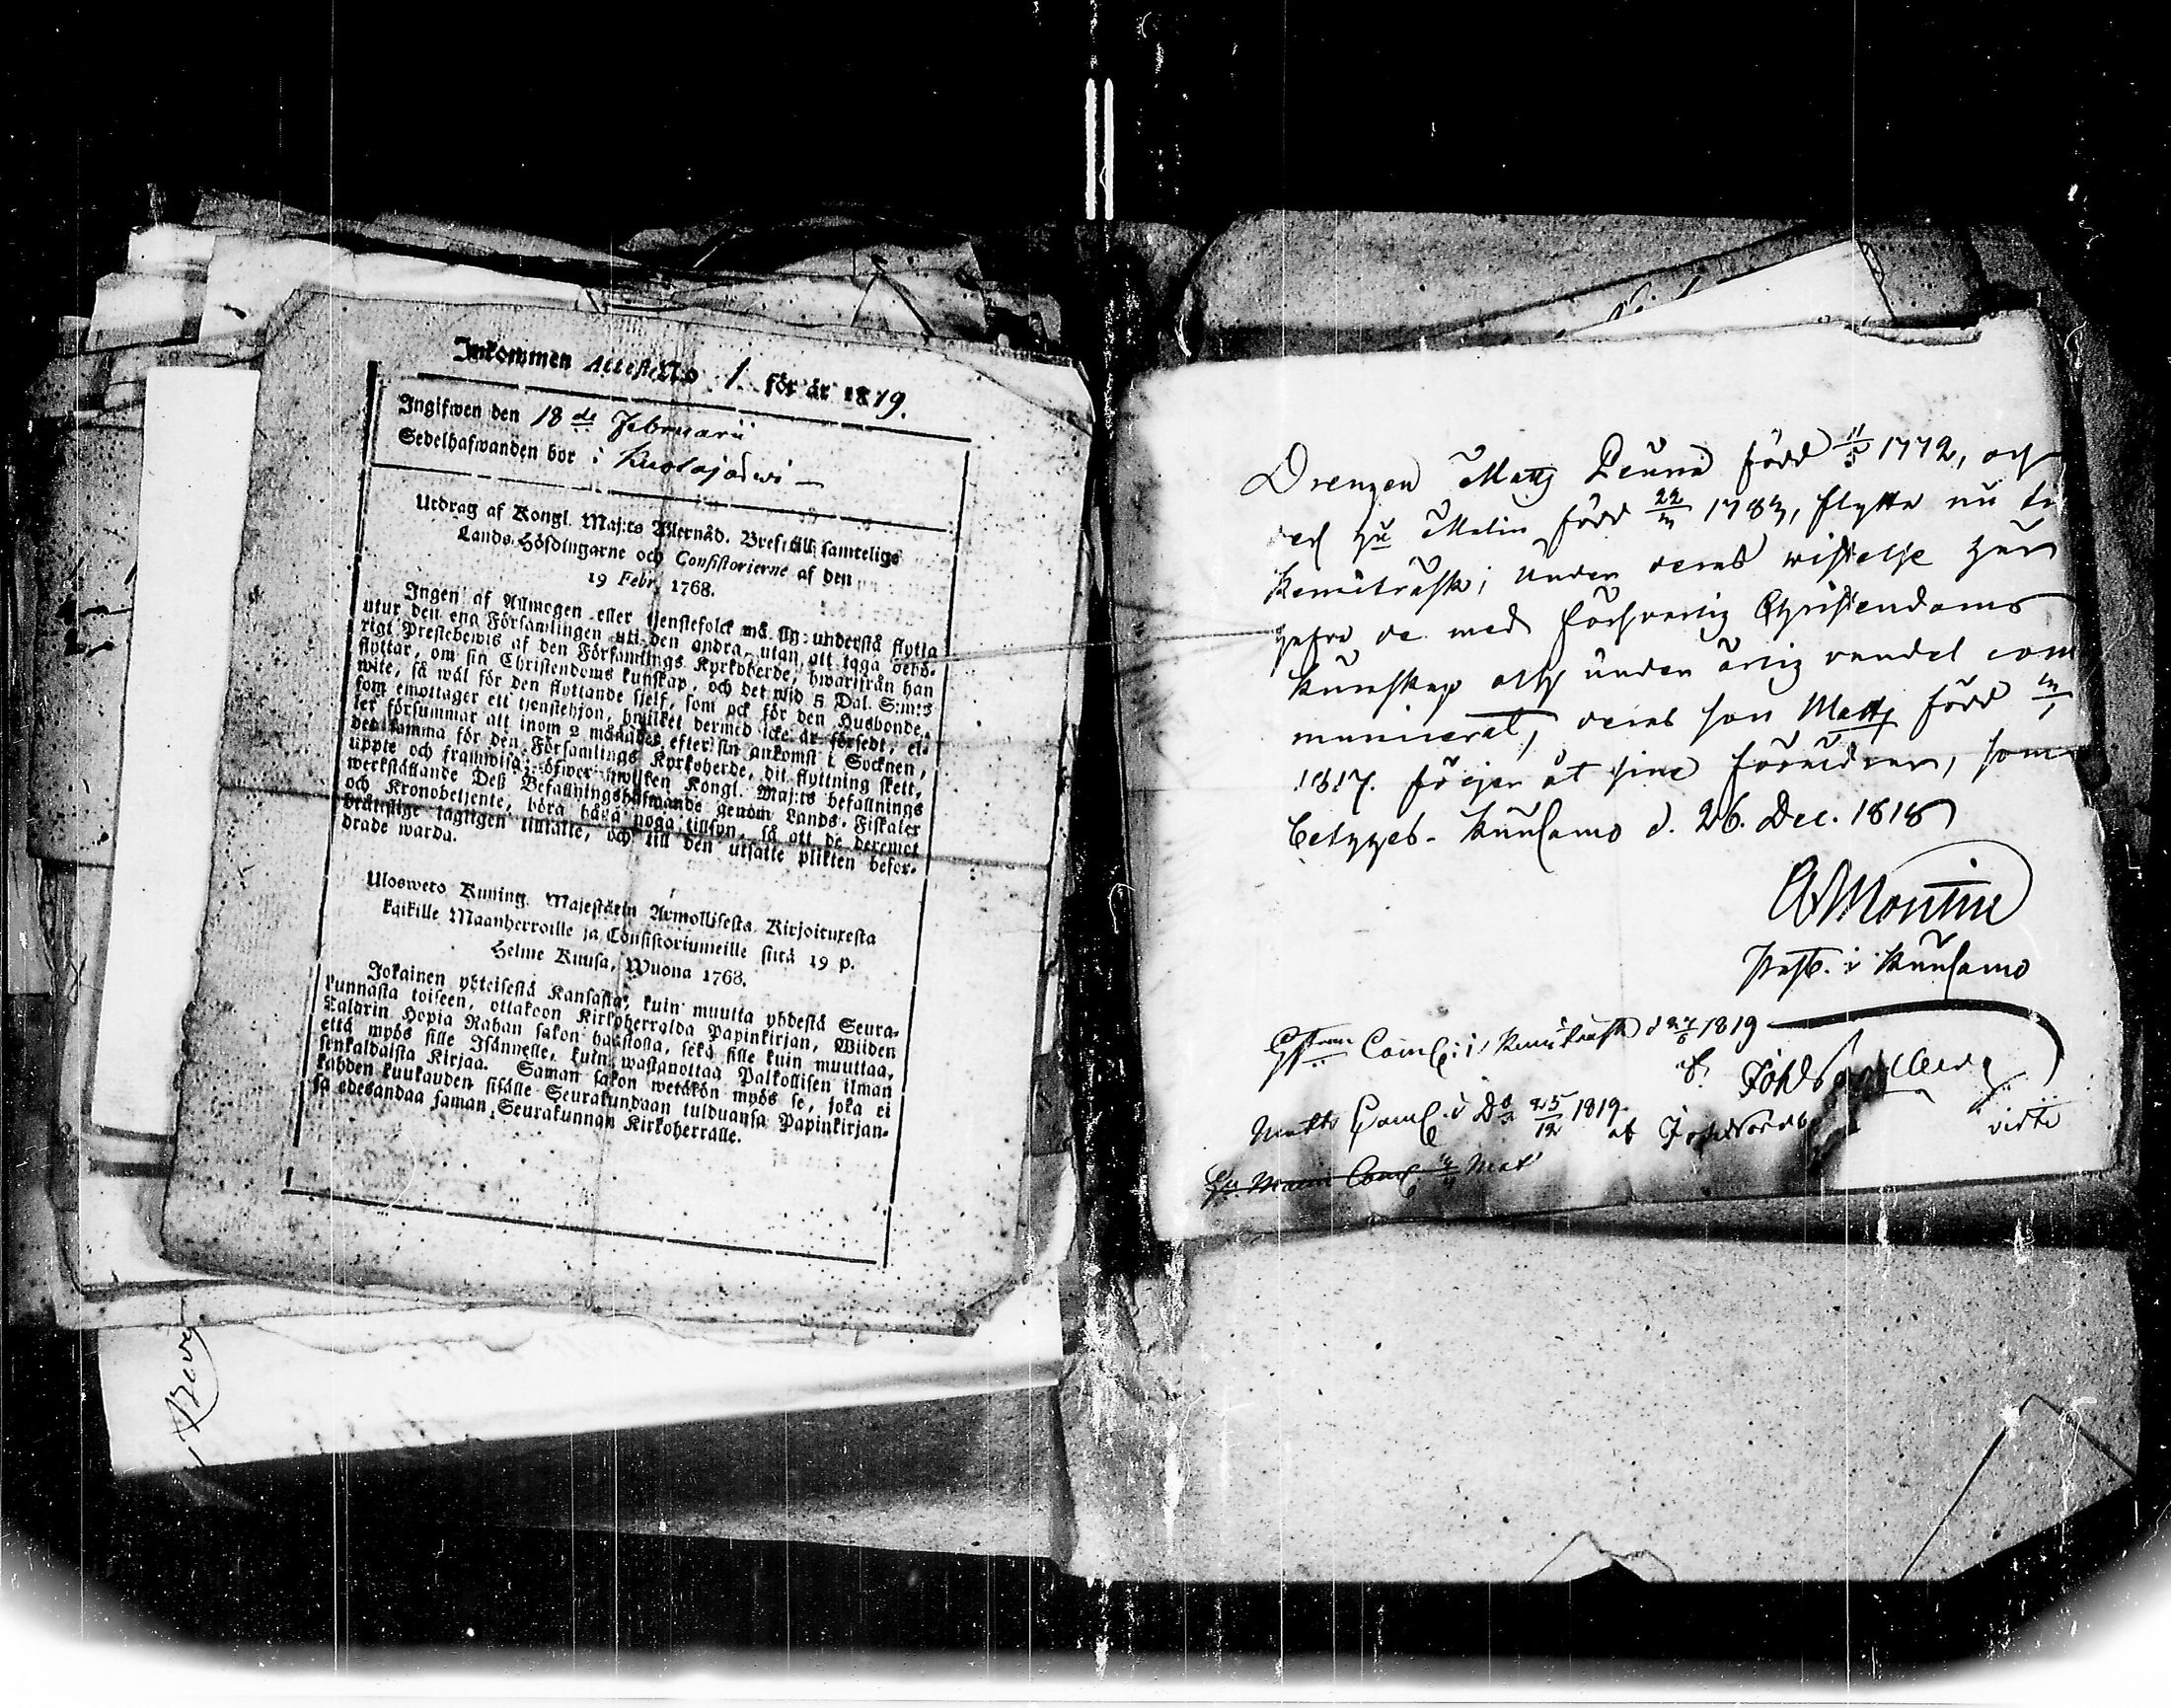 Inkommen Attest No 1. för år 1819.
Ingifwen den 18de Februarii
Sedelhafwanden bor i Kuolajärwi
Utdrag af Kongl. Maj:ts Allernåd. Bref till samtelige
Lands-Höfdingarne och Consistorierne af den
19 Febr. 1768.
Ingen af Allmogen eller tjenstefolck må sig understå flytta
utur den ena Församlingen uti den andra, utan att taga behö-
rigt Prestebewis af den Församlings Kyrkoherde, hwarifrån han
flyttar, om sin Christendoms kunskap, och det wid 5 Dal. S:m:s
wite, så wäl för den flyttande sjelf, som ock för den Husbonde,
som emottager ett tjenstehjon, hwilket dermed icke är försedt, el-
ler försummar att inom 2 månader efter sin ankomst i Socknen,
det samma för den Församlings Kyrkoherde, dit flyttning skett,
uppte och framwisa; öfwer hwilken Kongl. Maj:ts befallnings
werkställande Deß Befallningshafwande genom Lands-Fiskaler
och Kronobetjente, böra hafwa noga tillsyn, så att de deremot
bråttslige lagligen tilltalte, och till den utsatte plikten befor-
drade warda.
Ulosweto Kuning. Majestätin Armollisesta Kirjoituxesta
kaikille Maanherroille ja Consistoriumeille siitä 19 p.
Helme Kuusa, Wuona 1768.
Jokainen yhteisestä Kansasta, kuin muutta yhdestä Seura-
kunnasta toiseen, ottakoon Kirkoherralda Papinkirjan, Wiiden
Talarin Hopia Rahan sakon haastolla, sekä sille kuin muuttaa,
että myös sille Isännelle, kuin wastanottaa Palkollisen ilman
senkaldaista Kirjaa. Saman sakon wetäkön myös se, joka ei
kahden kuukauden sisälle Seurakundaan tulduansa Papinkirjan-
sa edesandaa saman Seurakunnan Kirkoherralle.
Drengen Matts Leuna född 11/5 1772, och
des hu Malin född 22/3 1783, flytta nu til
Kemiträsk; Under deras wistelse här
hafva de med försvarlig Christendoms
kunskap och under ärlig vandel com
municerat, deras son Matts född
1817. följer åt sine föräldrar, som
betyges. Kuusamo d. 26. Dec. 1818
Past. i Kuusamo
Hustrun Com: i Kemiträsk d 1819
Matts Com. i D:o 25/12 1819. af
Hu Com. Mat